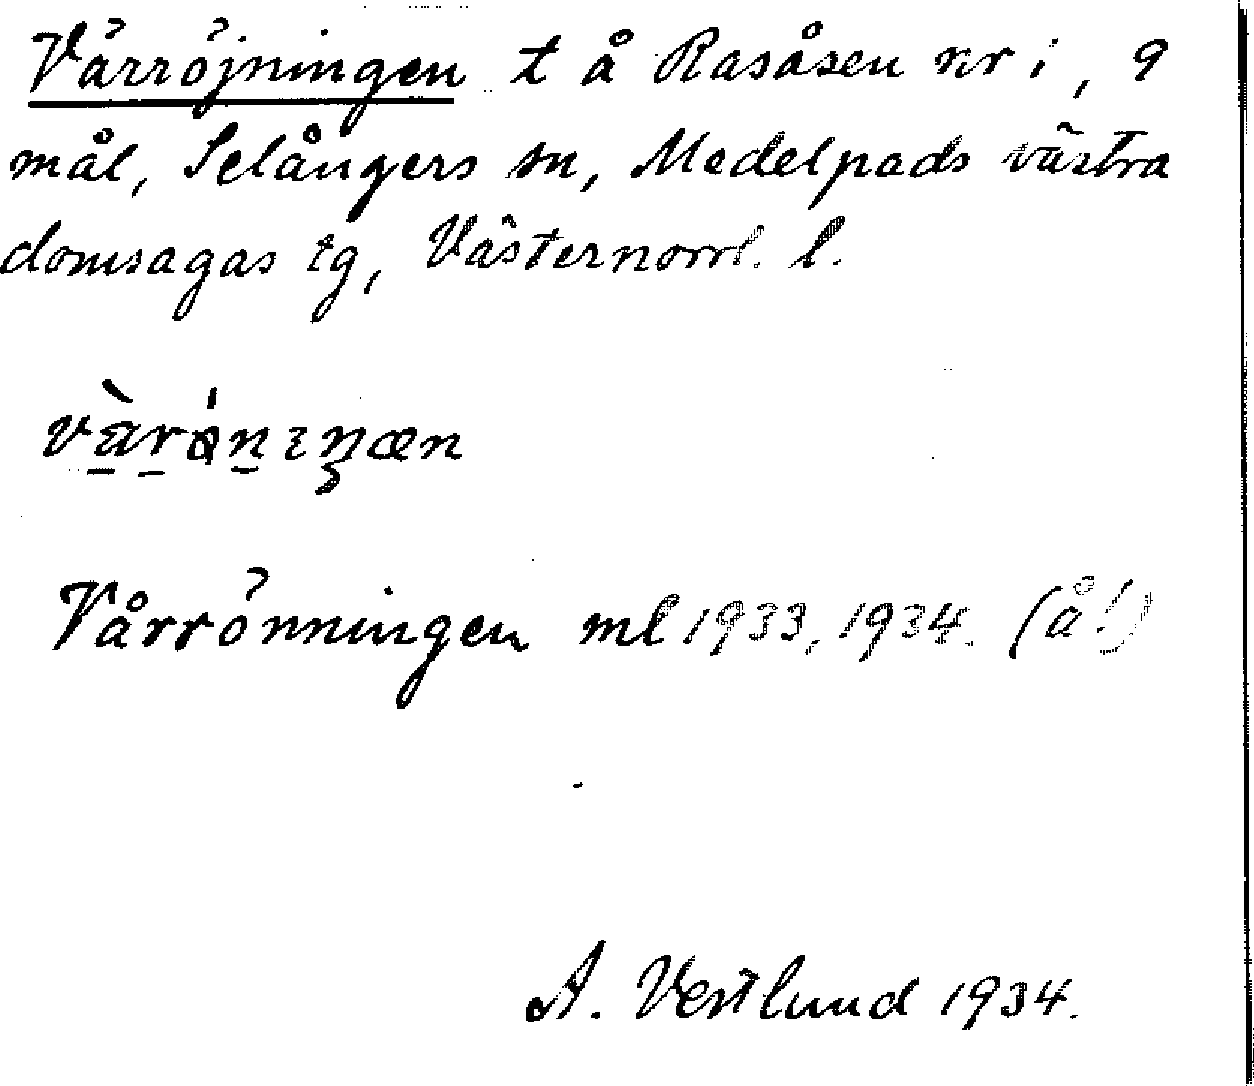 Vårröjningen t å Rasåsen nr 1, 9
mål, Selångers sn, Medelpads västra
domsagas tg, Västernorrl. l.
Vårrönningen ml 1933, 1934. (å!)
A. Vestlund 1934.